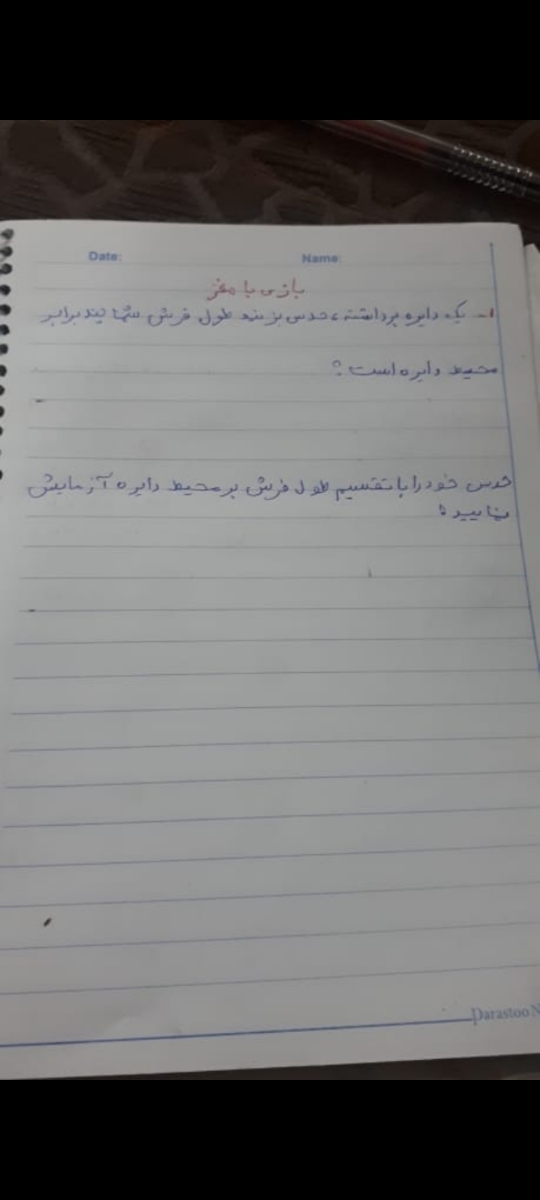 Date:
Name:
بازی با مغز
۱- یک دایره برداشته، حدس بزنید طول فرش شما چند برابر
محیط دایره است؟
حدس خود را با تقسیم طول فرش بر محیط دایره آزمایش
نمایید؟
Parastoo N